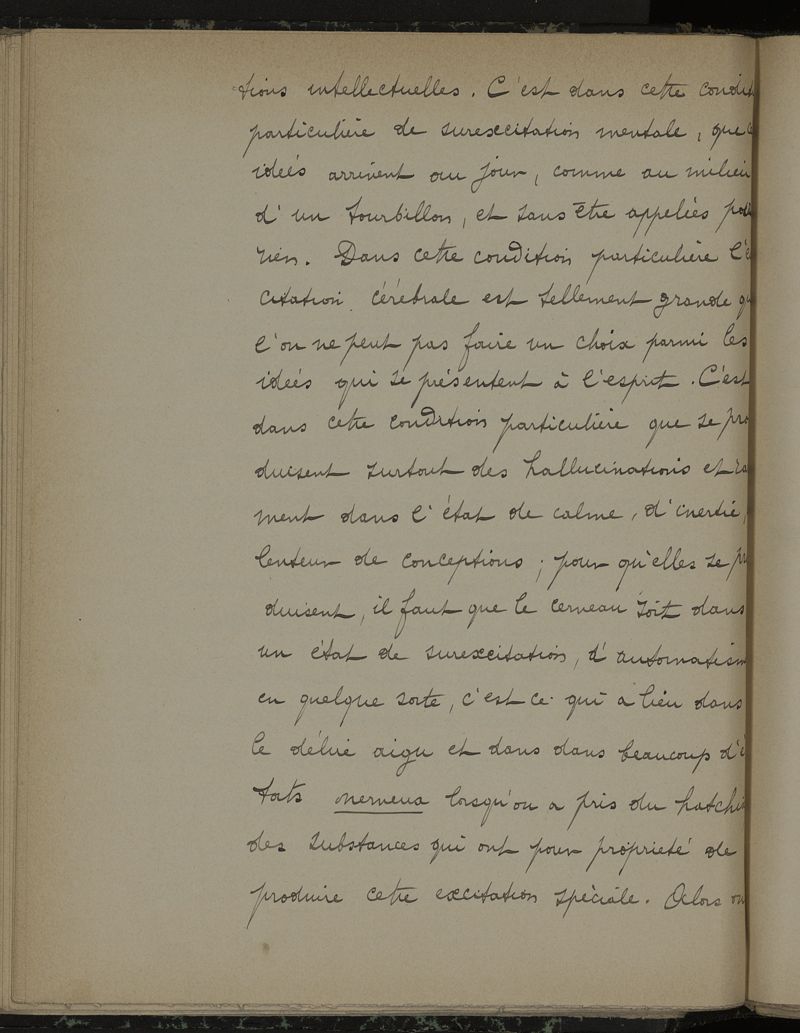 tions intellectuelles. C'est dans cette condit
particulière de surexcitation mentale, que
ideés arrivent au jour, comme au milieu
d'un tourbillon, et sans être appeliés
rien. Dans cette condition particulière l'
citation cérébrale est tellement grande
l'on ne peut pas faire un choix parmi les
ideés qui se présentent à l'esprit. C'est
dans cette condition particulière que se pro
duisent surtout des hallucinations et
ment dans l'état de calme, d'inertie,
lenteur de conceptions ; pour qu'elles se
duisent, il faut que le cerveau soit dans
un état de surexcitation, d'automatism
en quelque sorte, c'est ce qui a lieu dans
le délire aigu et dans dans beaucoup d'
tats nerveux lorsqu'on a pris du hatchi
des substances qui ont pour proprieté de
produire cette excitation spèciale. Alors on